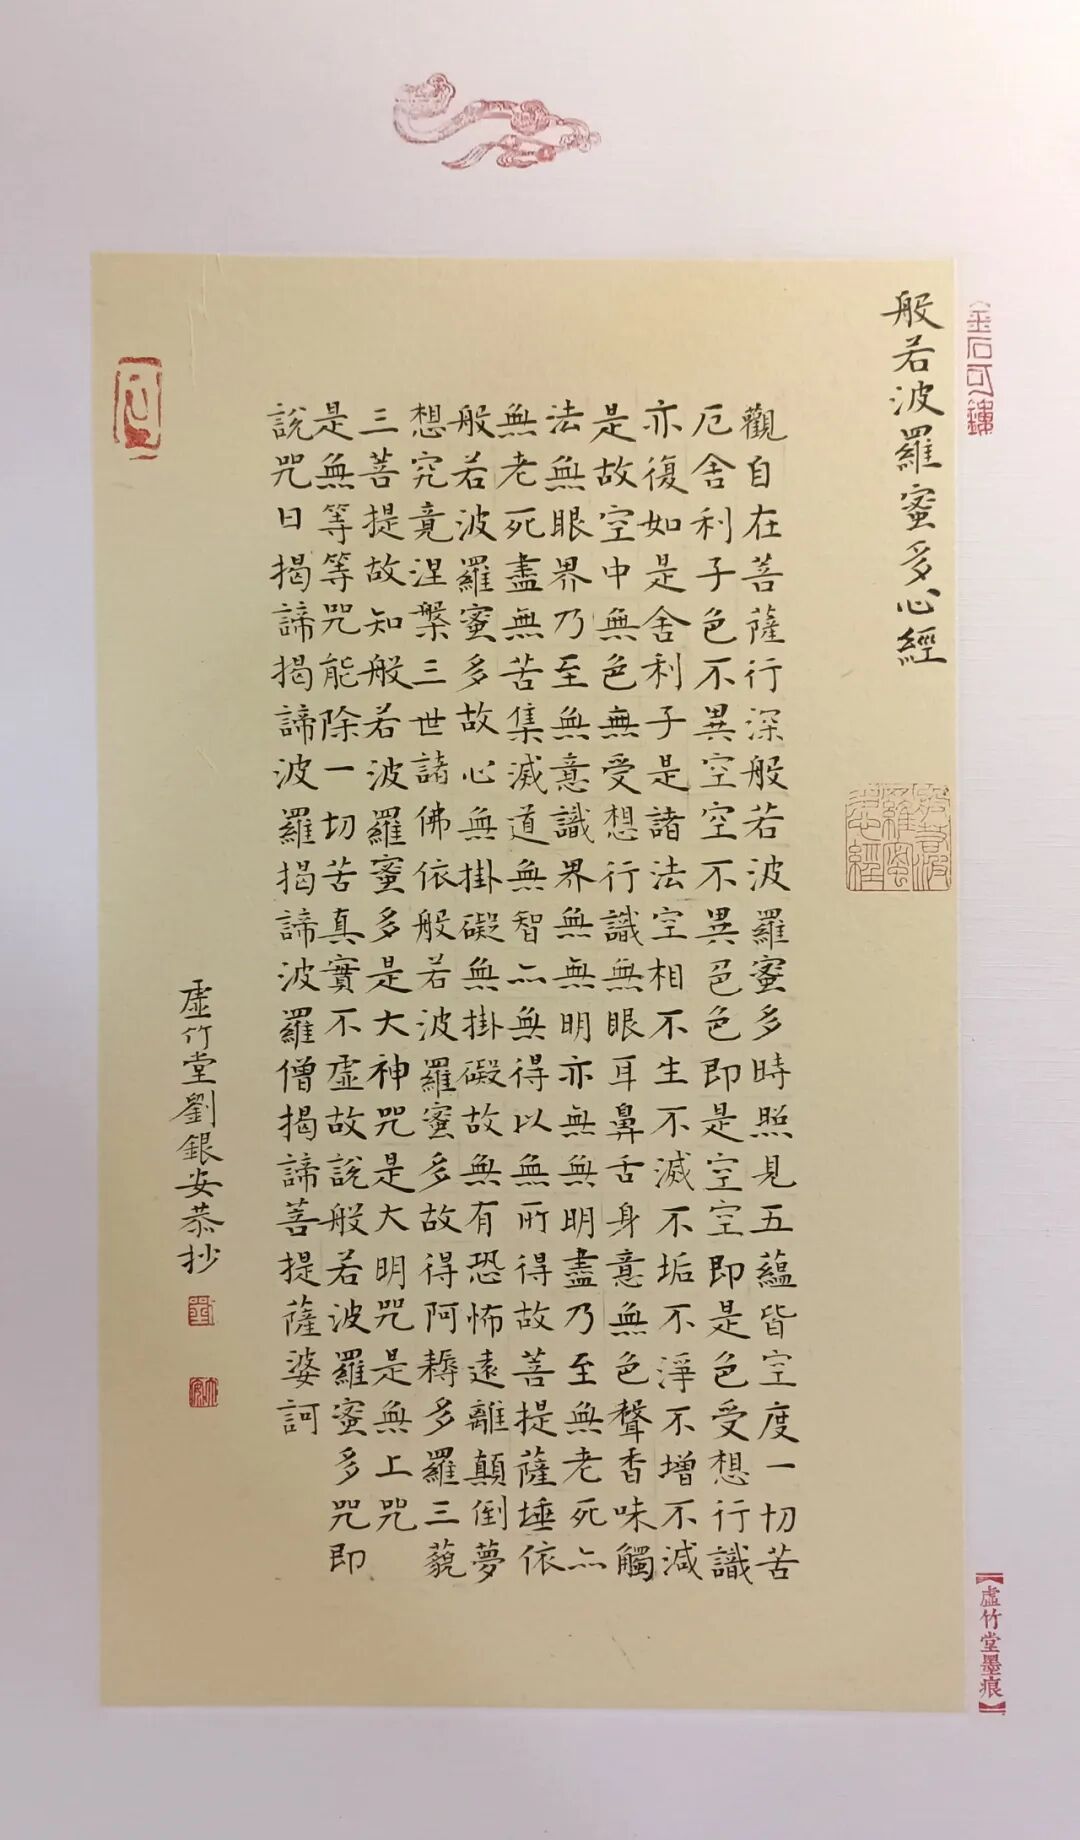 金石可鏤
【虛竹堂墨痕】
般若波羅蜜多心經
觀自在菩薩行深般若波羅蜜多時照見五蘊皆空度一切苦
厄舍利子色不異空空不異色色即是空空即是色受想行識
亦復如是舍利子是諸法空相不生不滅不垢不淨不增不減
是故空中無色無受想行識無眼耳鼻舌身意無色聲香味觸
法無眼界乃至無意識界無無明亦無無明盡乃至無老死亦
無老死盡無苦集滅道無智亦無得以無所得故菩提薩埵依
般若波羅蜜多故心無掛礙無掛礙故無有恐怖遠離顛倒夢
想究竟涅槃三世諸佛依般若波羅蜜多故得阿耨多羅三藐
三菩提故知般若波羅蜜多是大神咒是大明咒是無上咒
是無等等咒能除一切苦真實不虛故說般若波羅蜜多咒即
說咒曰揭諦揭諦波羅揭諦波羅僧揭諦菩提薩婆訶
虛竹堂劉銀安恭抄